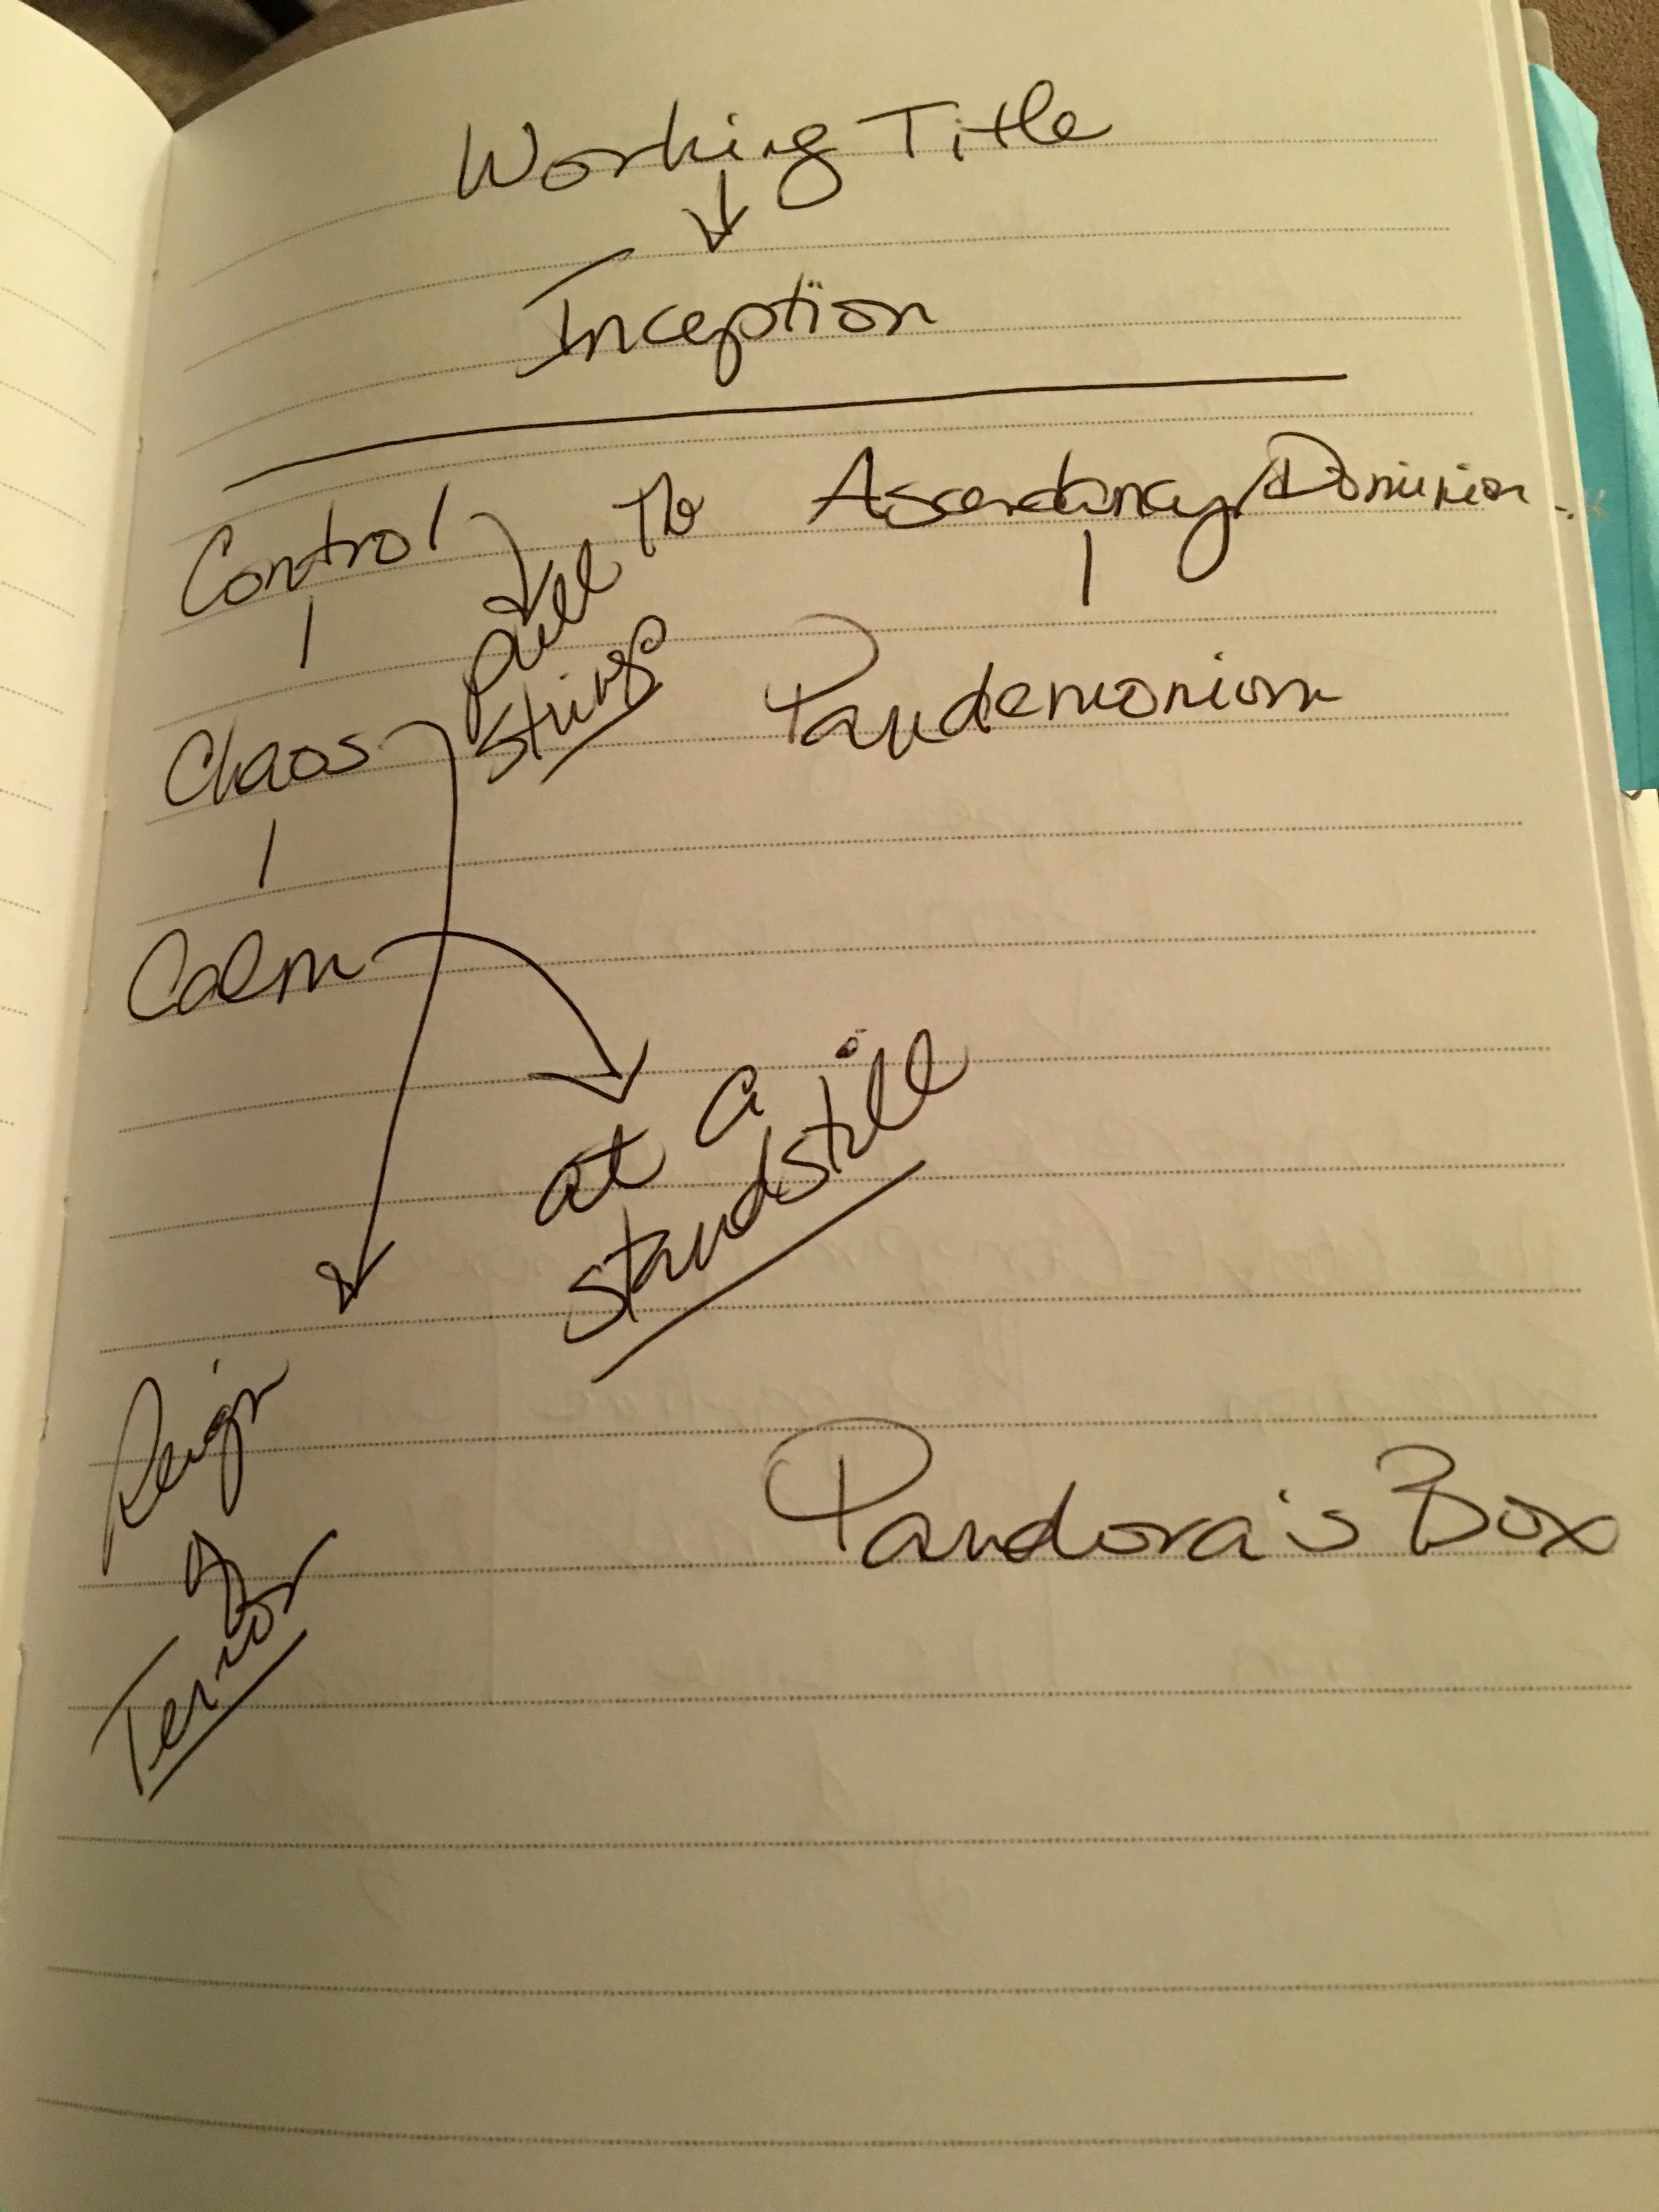 Working Title
Inception
Control
Pull the
strings
Ascendancy/Dominion
Pandemonium
Chaos
Calm
at a
standstill
Reign
of
Terror
Pandora's Box